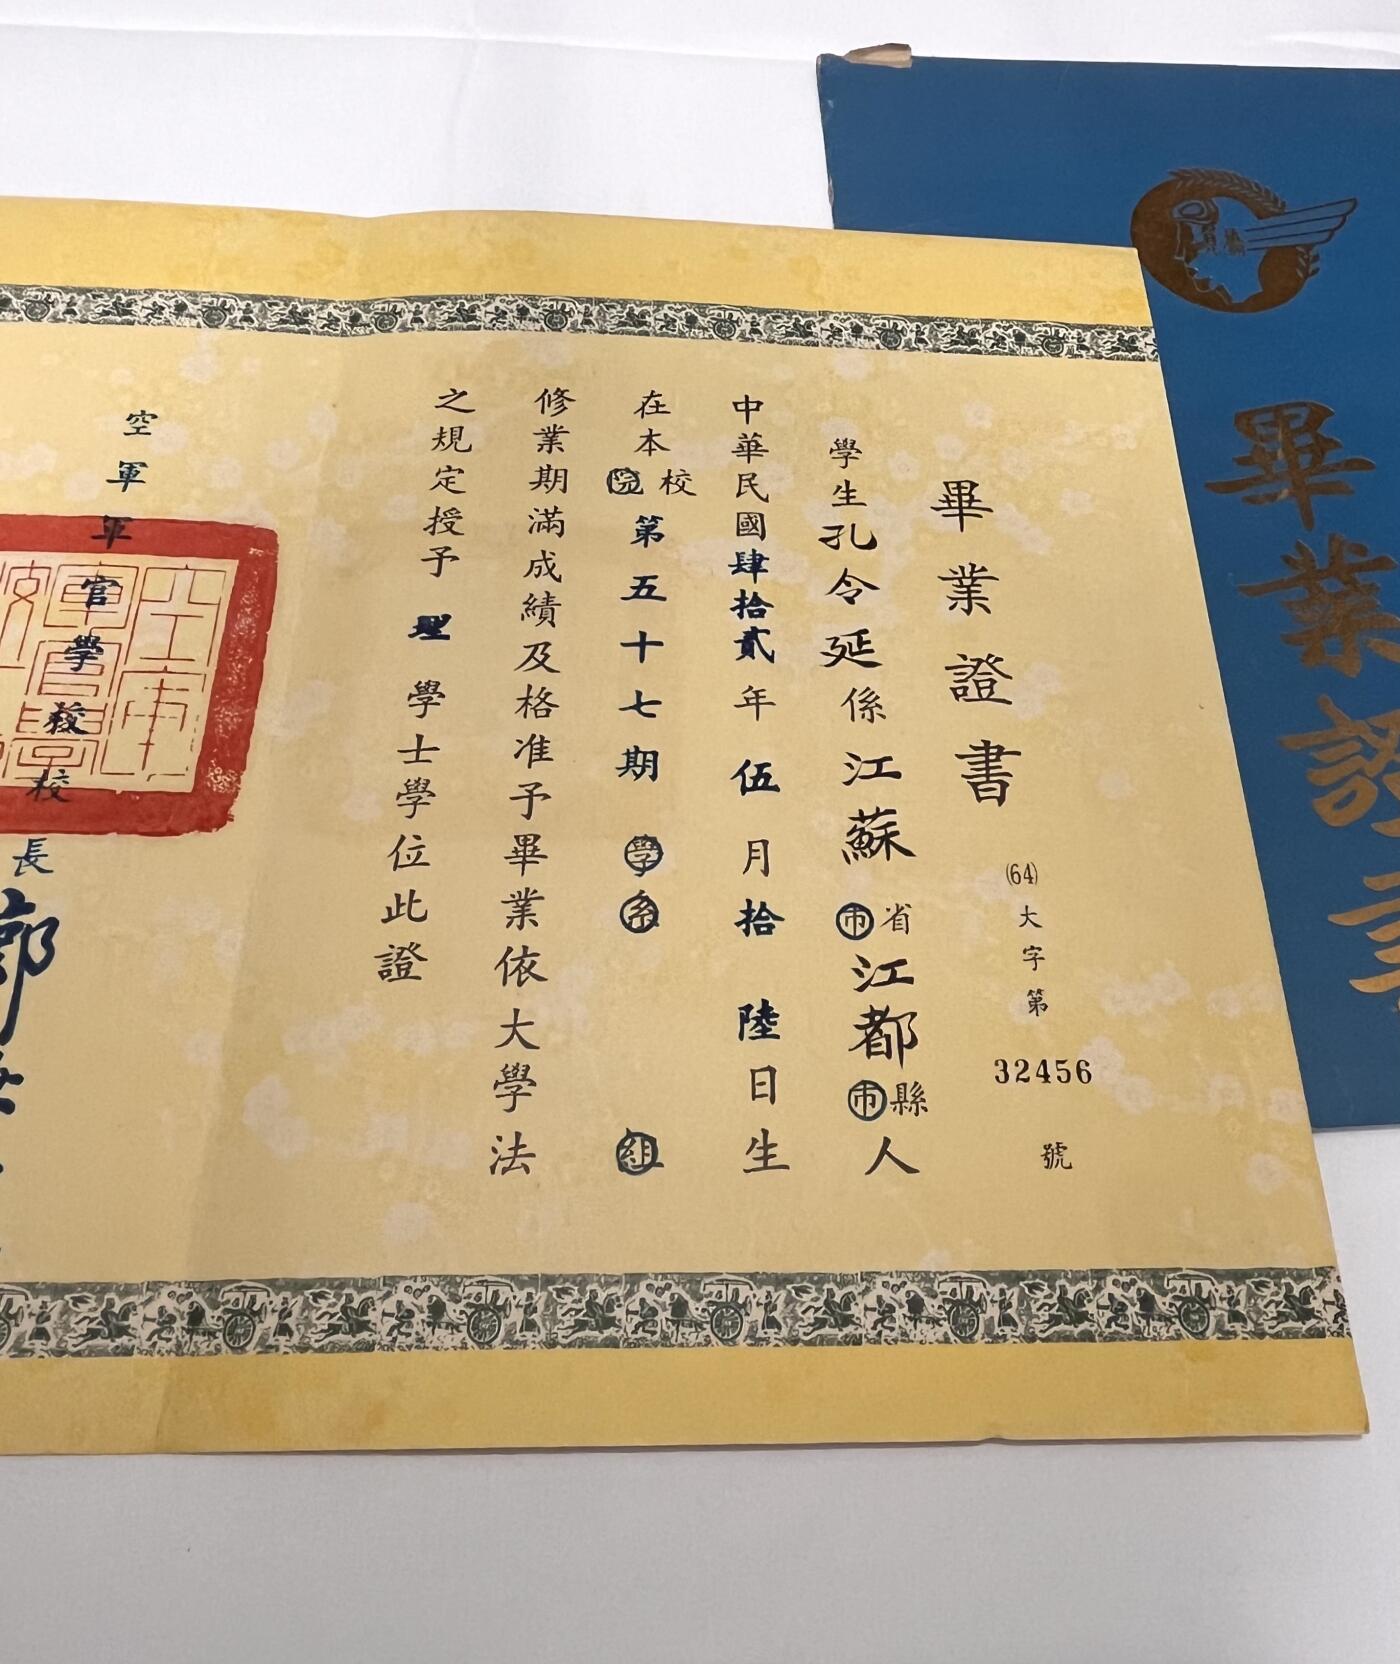 畢業證書
(64)大字第32456號
學生孔令延係江蘇省市江都縣市人
中華民國肆拾貳年伍月拾陸日生
在本校院第五十七期學系組
修業期滿成績及格准予畢業依大學法
之規定授予理學士學位此證
空軍軍官學校校長
畢業證書